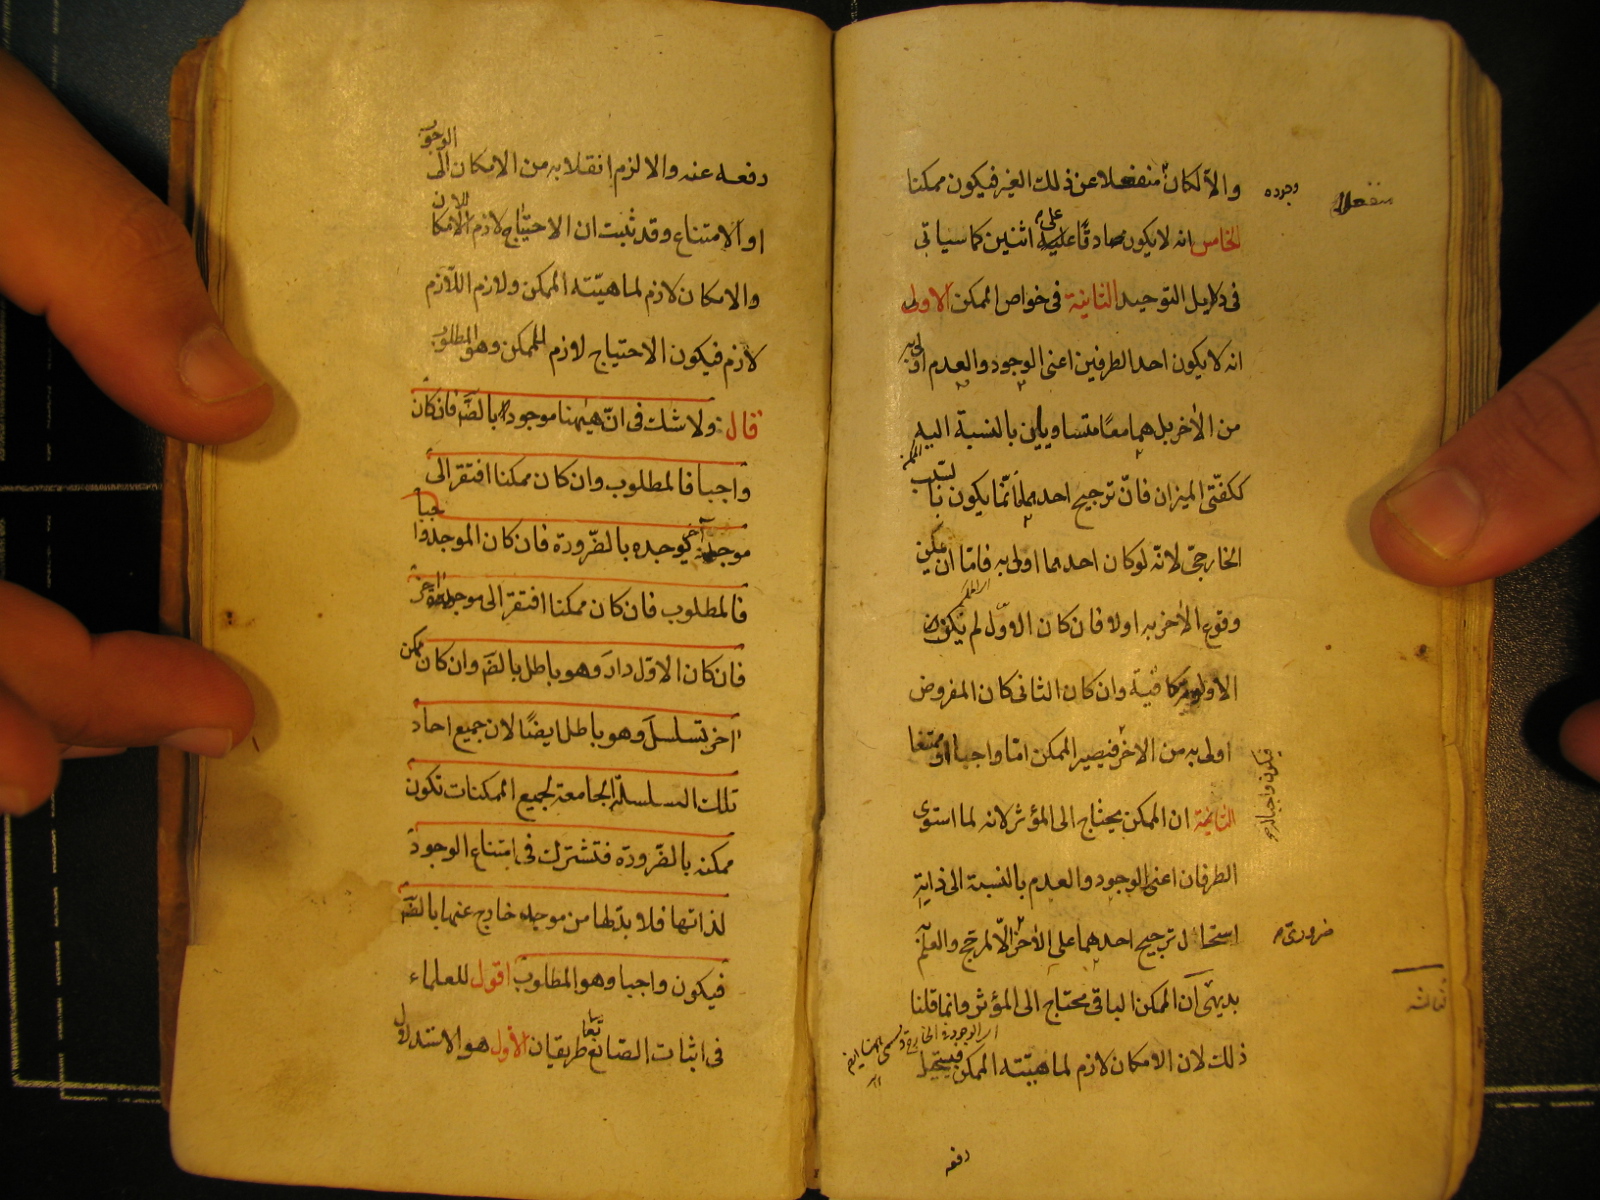 والا لكان منفعلا عن ذلك الغير فيكون ممكنا
وجوده
منفعلا
الخامس انه لا يكون صادقا على اثنين كما سياتى
فى دلايل التوحيد الثانية فى خواص الممكن الاولى
انه لا يكون احد الطرفين اعنى الوجود والعدم اولى به
من الأخر بل هما معًا متساويان بالنسبة اليه
ككفّتى الميزان فانّ ترجيح احدهما انّما يكون بالسبب
الخارجىّ لانّه لو كان احدهما اولى به فامّا ان يمكن
وقوع الأخر به اولا فان كان الاوّل لم يكن
الاولوية كافية وان كان الثانى كان المفروض
اولى به من الاخر فيصير الممكن امّا واجبا او ممتنعا
الثانية ان الممكن يحتاج الى المؤثر لانه لما استوى
الطرفان اعنى الوجود والعدم بالنسبة الى ذاته
استحال ترجيح احدهما على الأخر الّا لمرجح والعلم به
ضرورى
بديهىّ الثالثة
آن الممكن الباقى محتاج الى المؤثر وانما قلنا
ذلك لان الامكان لازم لماهيّته الممكن فيستحيل
دفعه
دفعه عنه والا لزم انقلابه من الامكان الى الوجوب
او الامتناع وقد ثبت ان الاحتياج لازم للامكان
والامكان لازم لماهيّته الممكن ولازم اللازم
لازم فيكون الاحتياج لازم للممكن وهو المطلوب
قال ولا شك فى انّ هيهنا موجودا بالضّ فان كان
واجبا فالمطلوب وان كان ممكنا افتقر الى
موجد آخر يوجده بالضّرورة فان كان الموجد واجبا
فالمطلوب فان كان ممكنا افتقر الى موجد آخر
فان كان الاوّل دار وهو باطل بالضّ وان كان ممكن
اخر تسلسل وهو باطل ايضًا لان جميع احاد
تلك السلسلة الجامعة لجميع الممكنات تكون
ممكنه بالضّرورة فتشترك فى امتناع الوجود
لذاتها فلا بدّ لها من موجد خارج عنها بالضّ
فيكون واجبا وهو المطلوب اقول للعلماء
فى اثبات الصّانع تعا طريقان الأول هو الاستدلال